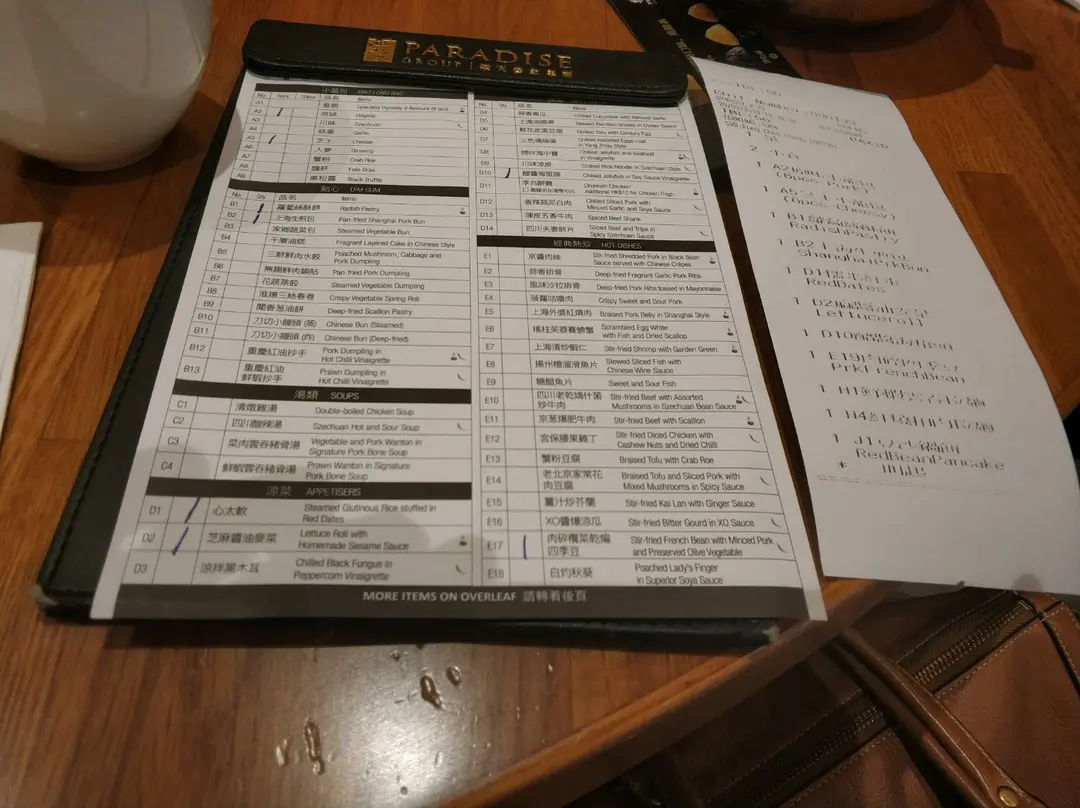 PARADISE
GROUP
小籠包 XIAO LONG BAO
No. 品名 Items
A1
A2 原味 Original
A3 川味 Szechuan
A4 蒜香 Garlic
A5 芝士 Cheese
A6 人蔘 Ginseng
A7 蟹粉 Crab Roe
A8 鵝肝 Foie Gras
A9 黑松露 Black Truffle
點心 DIM SUM
No. Qty 品名 Items
B1 蘿蔔絲酥餅 Radish Pastry
B2 上海生煎包 Pan-fried Shanghai Pork Bun
B3 家鄉蔬菜包 Steamed Vegetable Bun
B4 千層油糕 Fragrant Layered Cake in Chinese Style
B5 三鮮鮮肉水餃 Poached Mushroom, Cabbage and
Pork Dumpling
B6 無錫鮮肉鍋貼 Pan-fried Pork Dumpling
B7 花蔬蒸餃 Steamed Vegetable Dumpling
B8 淮揚三絲春卷 Crispy Vegetable Spring Roll
B9 聞香葱油餅 Deep-fried Scallion Pastry
B10 刀切小饅頭 (蒸) Chinese Bun (Steamed)
B11 刀切小饅頭 (炸) Chinese Bun (Deep-fried)
B12 重慶紅油抄手 Pork Dumpling in
Hot Chilli Vinaigrette
B13 重慶紅油
鮮蝦抄手 Prawn Dumpling in
Hot Chilli Vinaigrette
湯類 SOUPS
C1 清燉雞湯 Double-boiled Chicken Soup
C2 四川酸辣湯 Szechuan Hot and Sour Soup
C3 菜肉雲吞豬骨湯 Vegetable and Pork Wanton in
Signature Pork Bone Soup
C4 鮮蝦雲吞豬骨湯 Prawn Wanton in Signature
Pork Bone Soup
涼菜 APPETISERS
D1 心太軟 Steamed Glutinous Rice stuffed in
Red Dates
D2 芝麻醬油麥菜 Lettuce Roll with
Homemade Sesame Sauce
D3 涼拌黑木耳 Chilled Black Fungus in
Peppercorn Vinaigrette
No. 品名 Items
D4 Chilled Cucumber with Minced Garlic
D5 Stewed Bamboo Shoots in Oyster Sauce
D6 Chilled Tofu with Century Egg
D7 Chilled Assorted Eggs Loaf
in Yang Zhou Style
D8 Chilled Jellyfish and Seafood
in Vinaigrette
D9 川味涼皮 Chilled Rice Noodle in Szechuan Style
D10 Chilled Jellyfish in Soy Sauce Vinaigrette
D11 Drunken Chicken
Additional HK$10 for Chicken Thigh
D12 香辣蒜泥白肉 Chilled Sliced Pork with
Minced Garlic and Soya Sauce
D13 陳皮五香牛肉 Spiced Beef Shank
D14 四川夫妻肺片 Sliced Beef and Tripe in
Spicy Szechuan Sauce
經典熱炒 HOT DISHES
E1 京醬肉絲 Stir-fried Shredded Pork in Black Bean
Sauce served with Chinese Crêpes
E2 蒜香排骨 Deep-fried Fragrant Garlic Pork Ribs
E3 風味沙拉排骨 Deep-fried Pork Ribs tossed in Mayonnaise
E4 菠蘿咕嚕肉 Crispy Sweet and Sour Pork
E5 上海外婆紅燒肉 Braised Pork Belly in Shanghai Style
E6 瑤柱芙蓉賽螃蟹 Scrambled Egg White
with Fish and Dried Scallop
E7 上海清炒蝦仁 Stir-fried Shrimp with Garden Green
E8 揚州糟溜滑魚片 Stewed Sliced Fish with
Chinese Wine Sauce
E9 糖醋魚片 Sweet and Sour Fish
E10 四川老乾媽什菌
炒牛肉 Stir-fried Beef with Assorted
Mushrooms in Szechuan Bean Sauce
E11 京葱爆肥牛肉 Stir-fried Beef with Scallion
E12 宮保腰果雞丁 Stir-fried Diced Chicken with
Cashew Nuts and Dried Chilli
E13 蟹粉豆腐 Braised Tofu with Crab Roe
E14 老北京家常花
肉豆腐 Braised Tofu and Sliced Pork with
Mixed Mushrooms in Spicy Sauce
E15 薑汁炒芥蘭 Stir-fried Kai Lan with Ginger Sauce
E16 XO醬爆涼瓜 Stir-fried Bitter Gourd in XO Sauce
E17 肉碎欖菜乾煸
四季豆 Stir-fried French Bean with Minced Pork
and Preserved Olive Vegetable
E18 白灼秋葵 Poached Lady's Finger
in Superior Soya Sauce
MORE ITEMS ON OVERLEAF 請轉看後頁
1 B1
RadishPastry
1 B2
ShanghaiPrkBun
1 D1
RedDates
1 D2
Lettuceroll
1 D10
1 E19
PrkFrenchBean
1 H1
1 H4
1 J1
RedBeanPancake
*